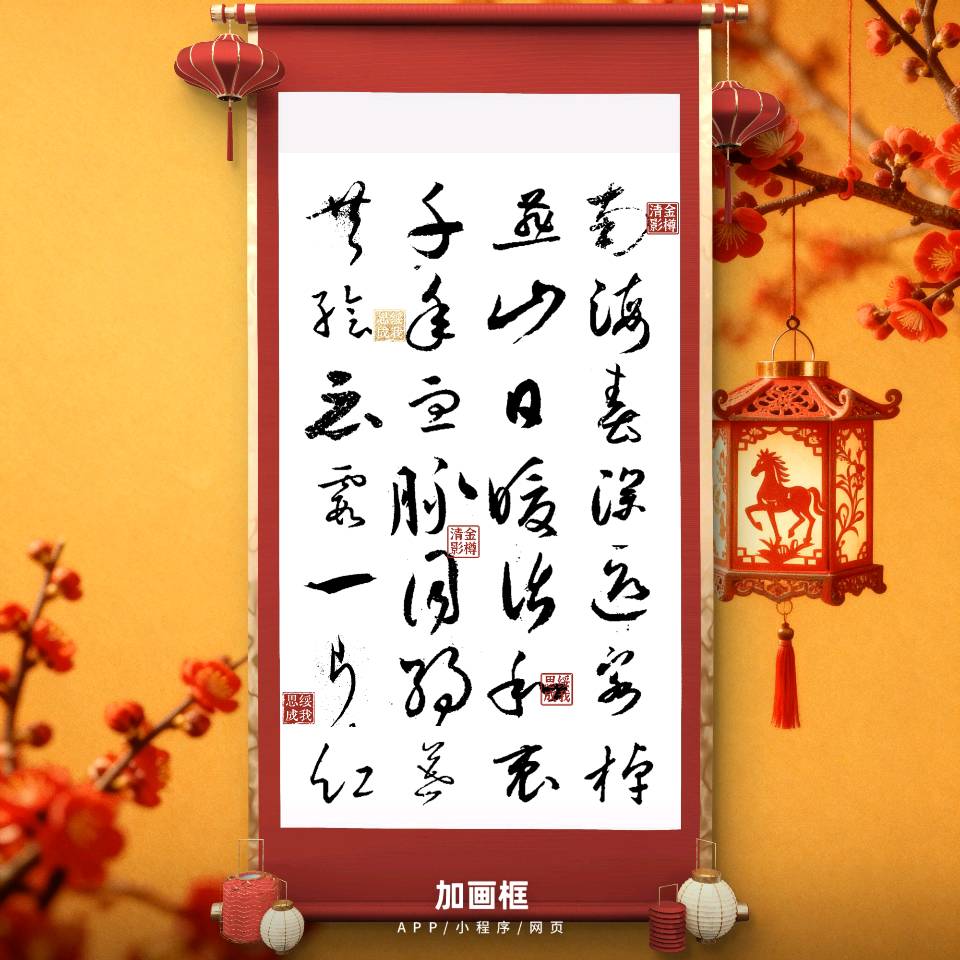 南海春深客棹
燕山日暖和衷
千年血脉同
共绘霞一片红
金樽清影
绥我思成
金樽清影
绥我思成
绥我思成
加画框
APP/小程序/网页